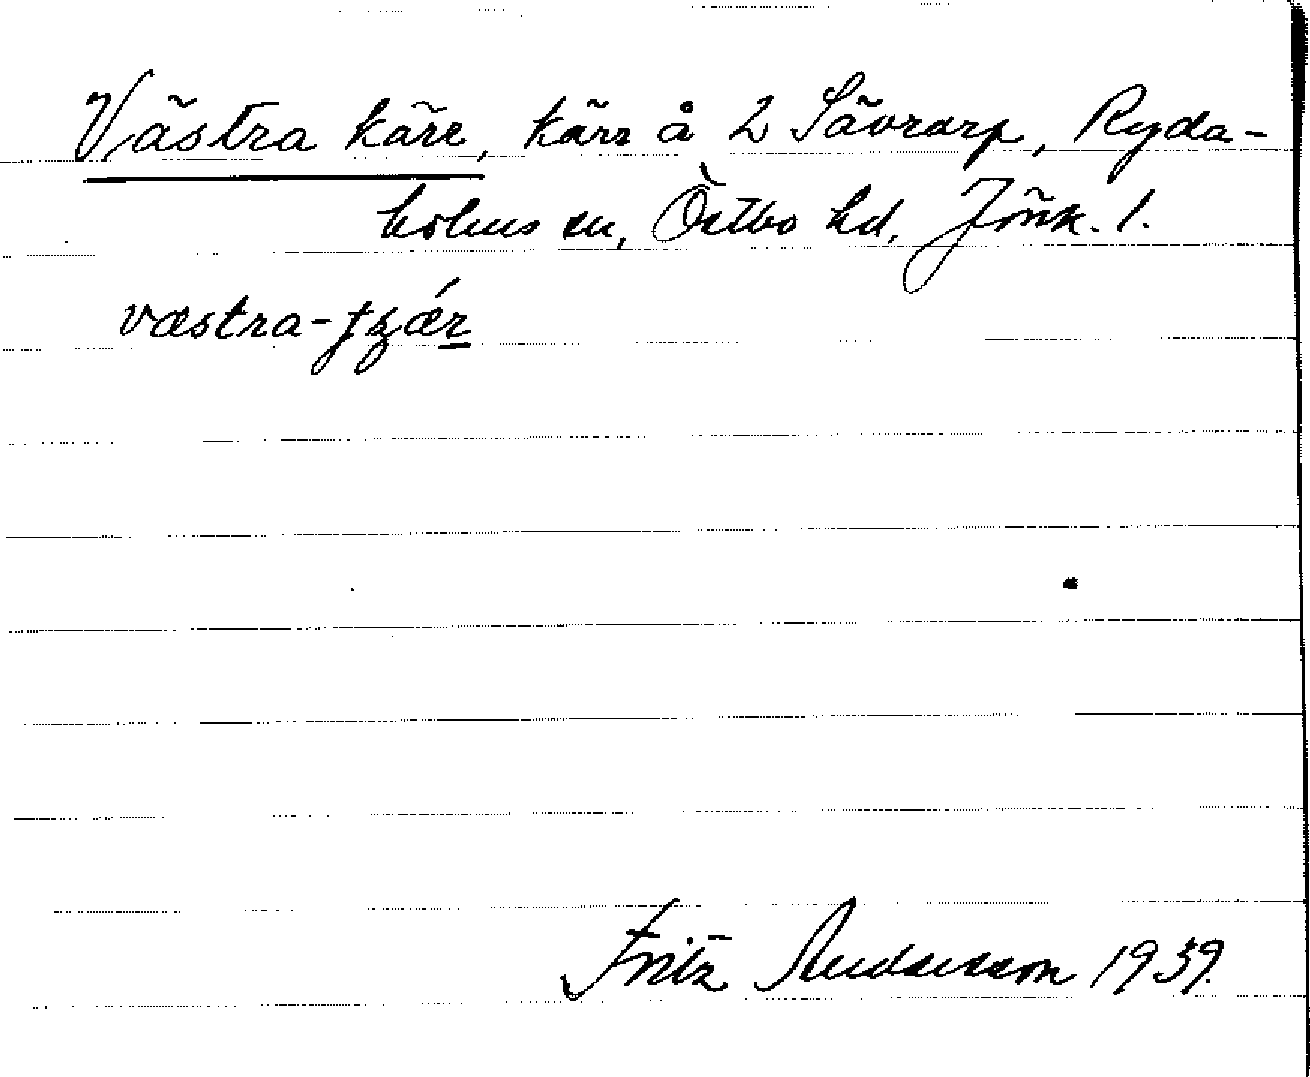 Västra kärr, kärr å 2 Sävrarp, Ryda-
holms sn, Östbo hd, Jönk. l.
væstra-
Fritz Andersson 1939.